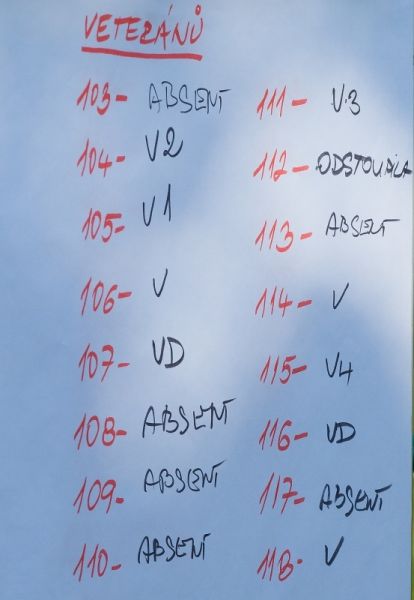 VETERÁNŮ
103- ABSENT
104- V2
105- V1
106- V
107- VD
108- ABSENT
109- ABSENT
110- ABSENT
111- V3
112- ODSTOUPILA
113- ABSENT
114- V
115- V4
116- VD
117- ABSENT
118- V